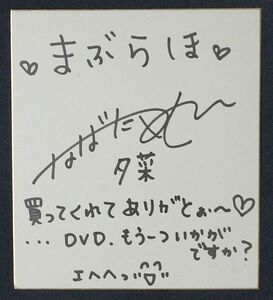 ♡まぶらほ♡
夕菜
買ってくれてありがとぉ〜♡
... DVD. もう一ついかが
ですか?
エヘヘっ